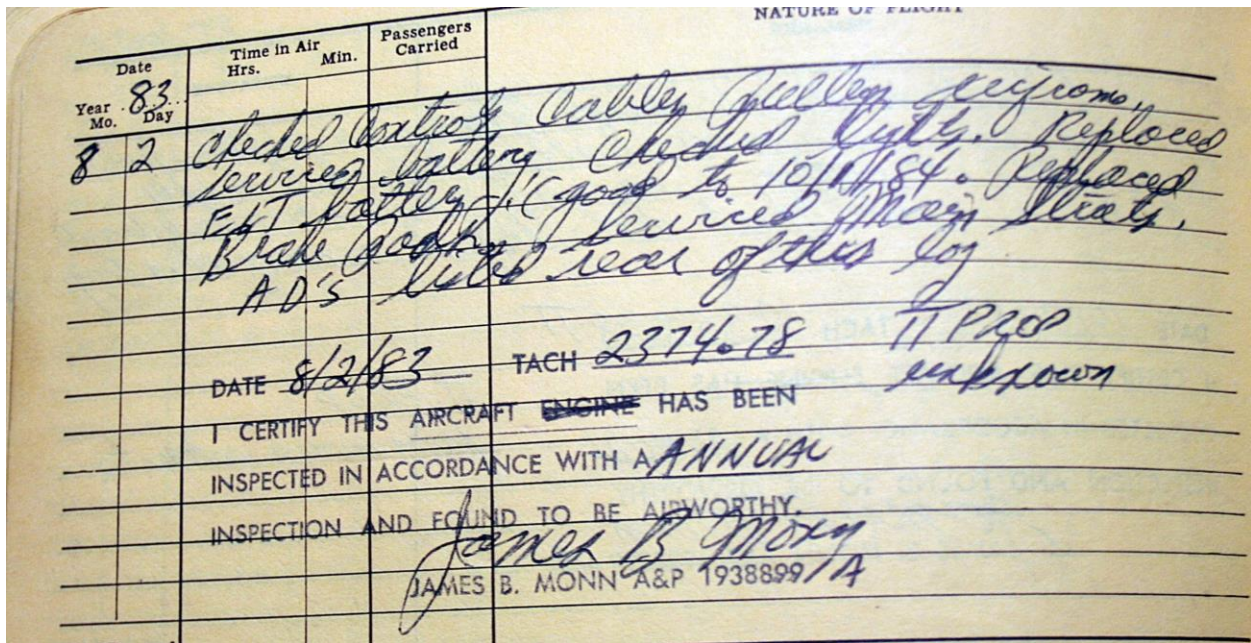 NATURE OF FLIGHT
Date
Time in Air
Hrs. Min.
Passengers
Carried
Year 83
Mo. Day
8 2 Checked Control Cables Pulleys
Serviced battery Checked lights. Replaced
ELT battery (good to 10/1/84. Replaced
Brake Serviced Main Struts.
AD'S listed rear of this log
DATE 8/2/83 TACH 2374.78 TT PROP
unknown
I CERTIFY THIS AIRCRAFT ENGINE HAS BEEN
INSPECTED IN ACCORDANCE WITH A ANNUAL
INSPECTION AND FOUND TO BE AIRWORTHY.
James B Monn
JAMES B. MONN A&P 1938899 IA